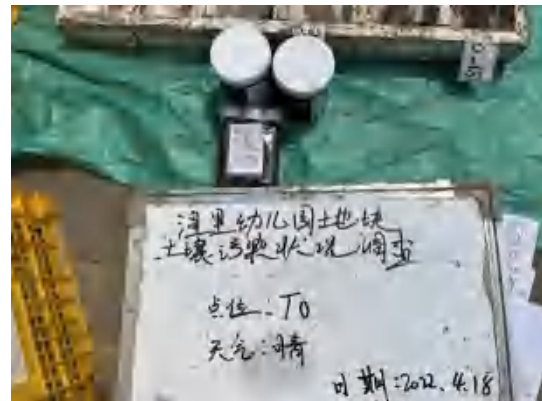 湾里幼儿园土地块
土壤污染状况调查
点位：T0
天气：晴
日期：2022.4.18